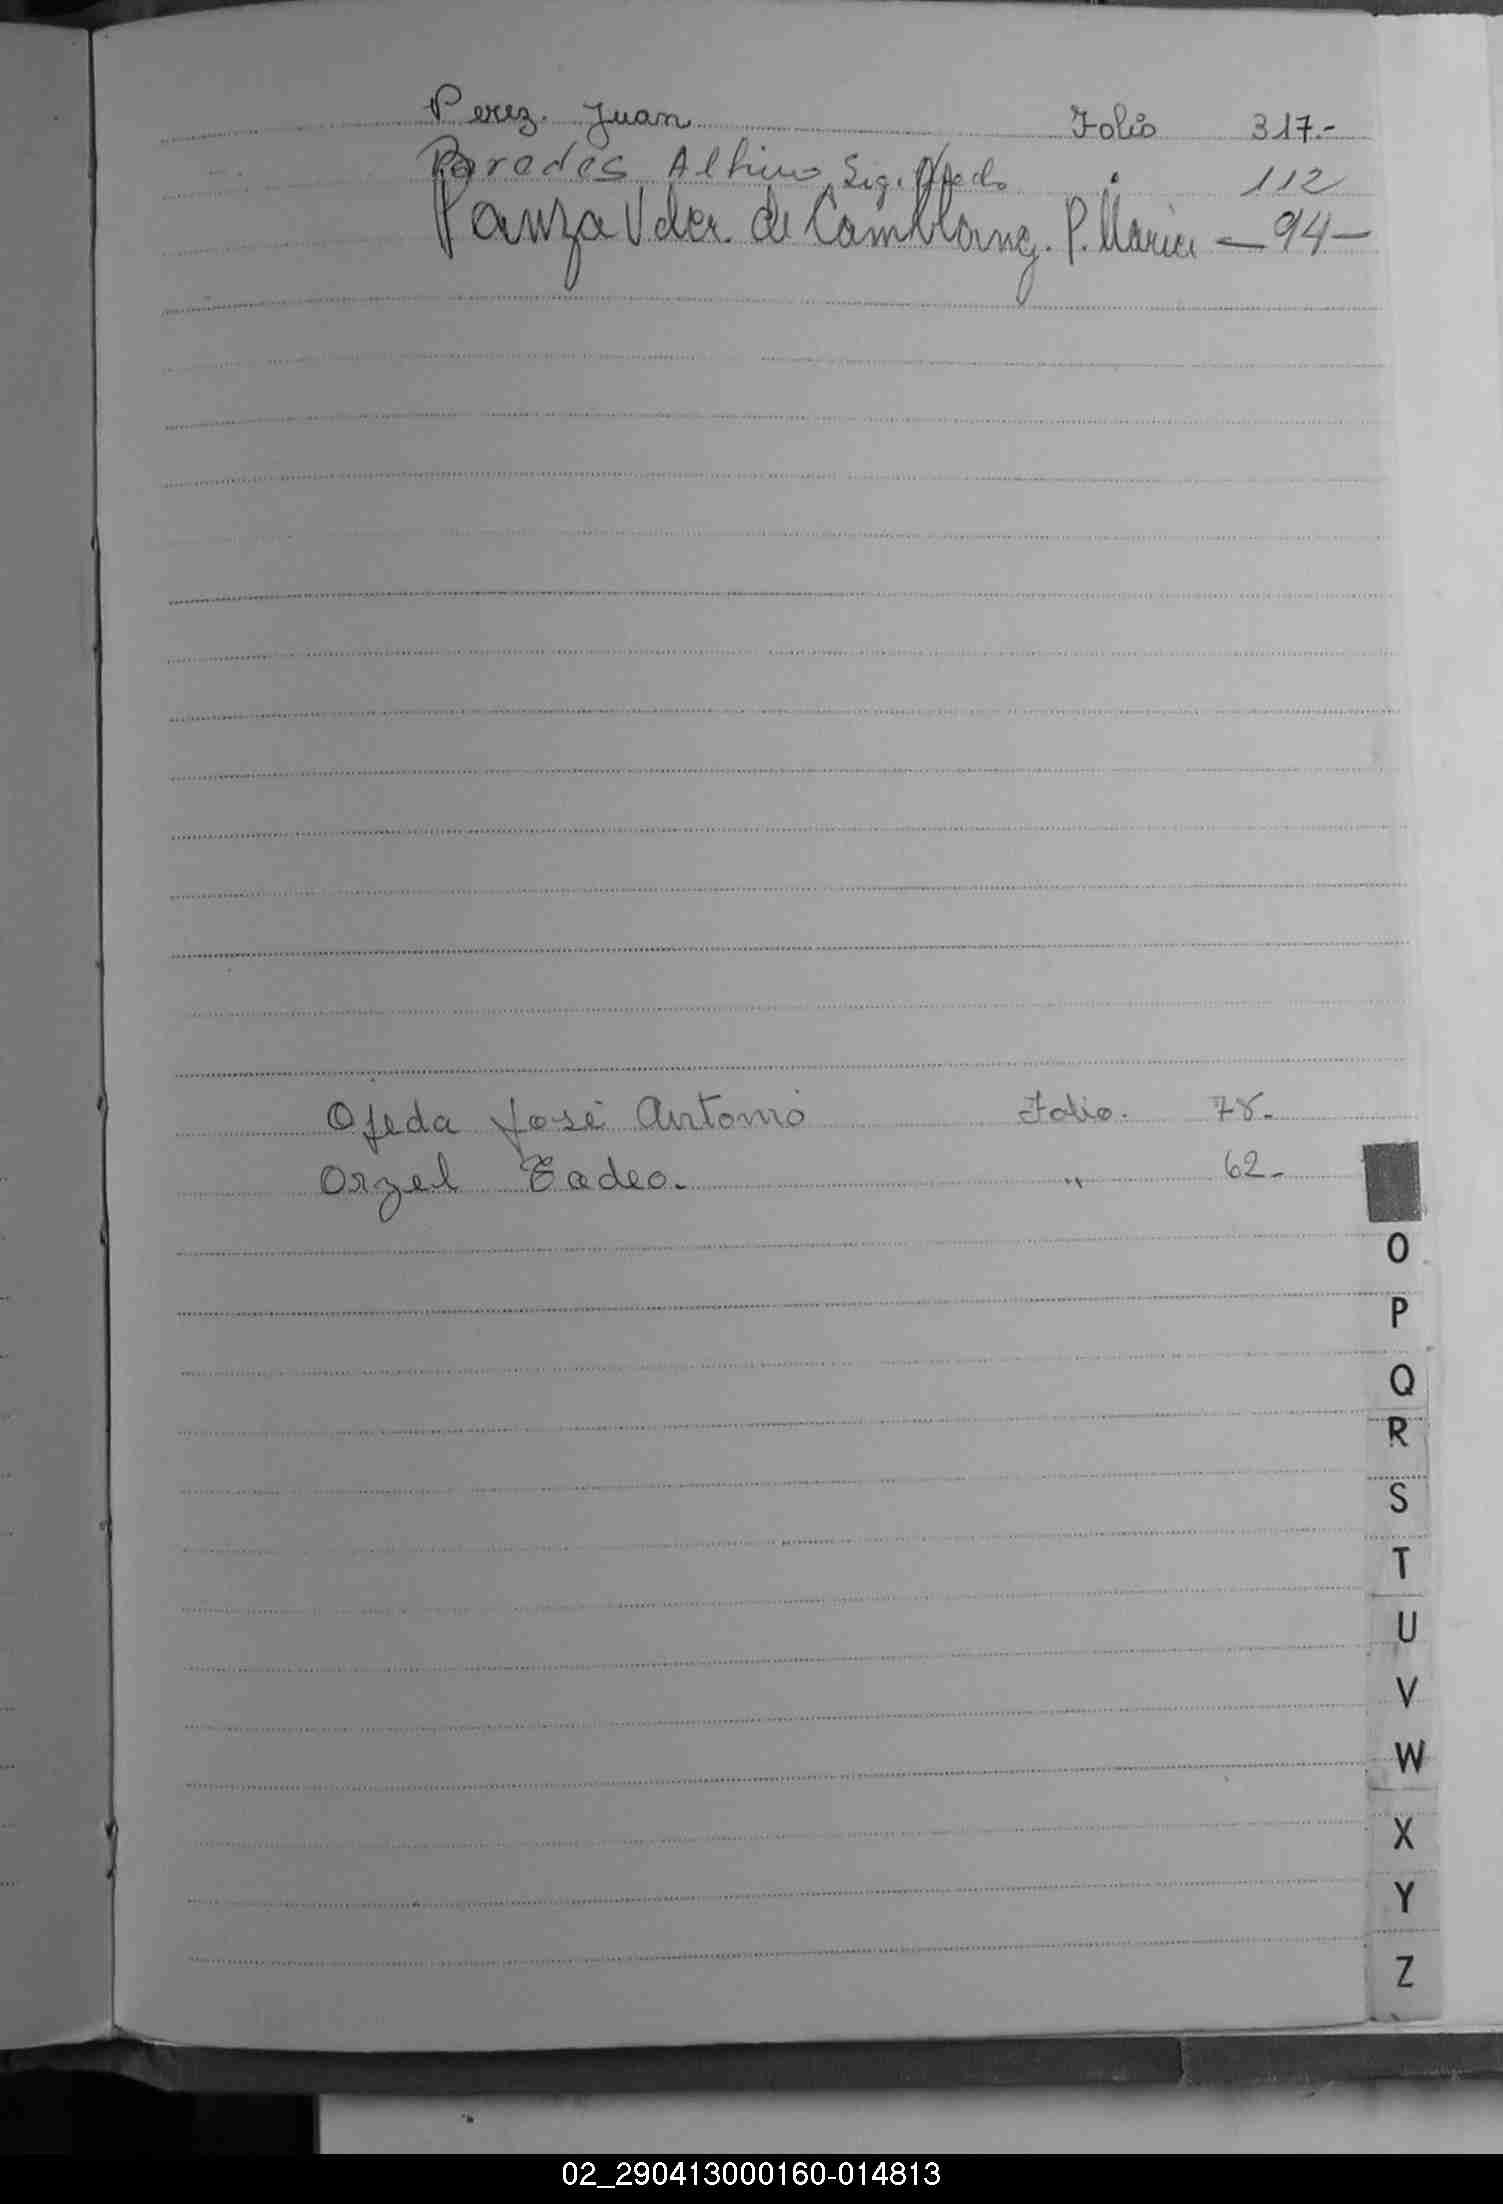 Perez. Juan Folio 317.-
Paredes Albino 112
Panza Vder. de P. Maria — 94 —
Ojeda José Antonio Folio. 78.
Orzel Tadeo. " 62-
O
P
Q
R
S
T
U
V
W
X
Y
Z
02_290413000160-014813